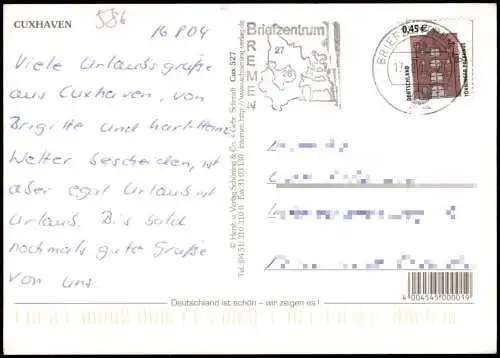 CUXHAVEN
586
16.8.04
Viele Urlaubsgrüße
aus Cuxhaven, von
Brigitte und Karl-Heinz
Wetter bescheiden, ist
aber egal Urlaub ist
Urlaub. Bis bald
nochmals gute Grüße
von uns.
© Herst. u. Verlag Schöning & Co. + Gebr. Schmidt Cux 527
Tel. (04 51) 310 310 Fax 31 03 130 Internet: http://www.schoening-verlag.de
Briefzentrum
BREMEN
27
BRIEFZENTRUM
17
0,45€
DEUTSCHLAND
4 004545 000019
Deutschland ist schön – wir zeigen es!